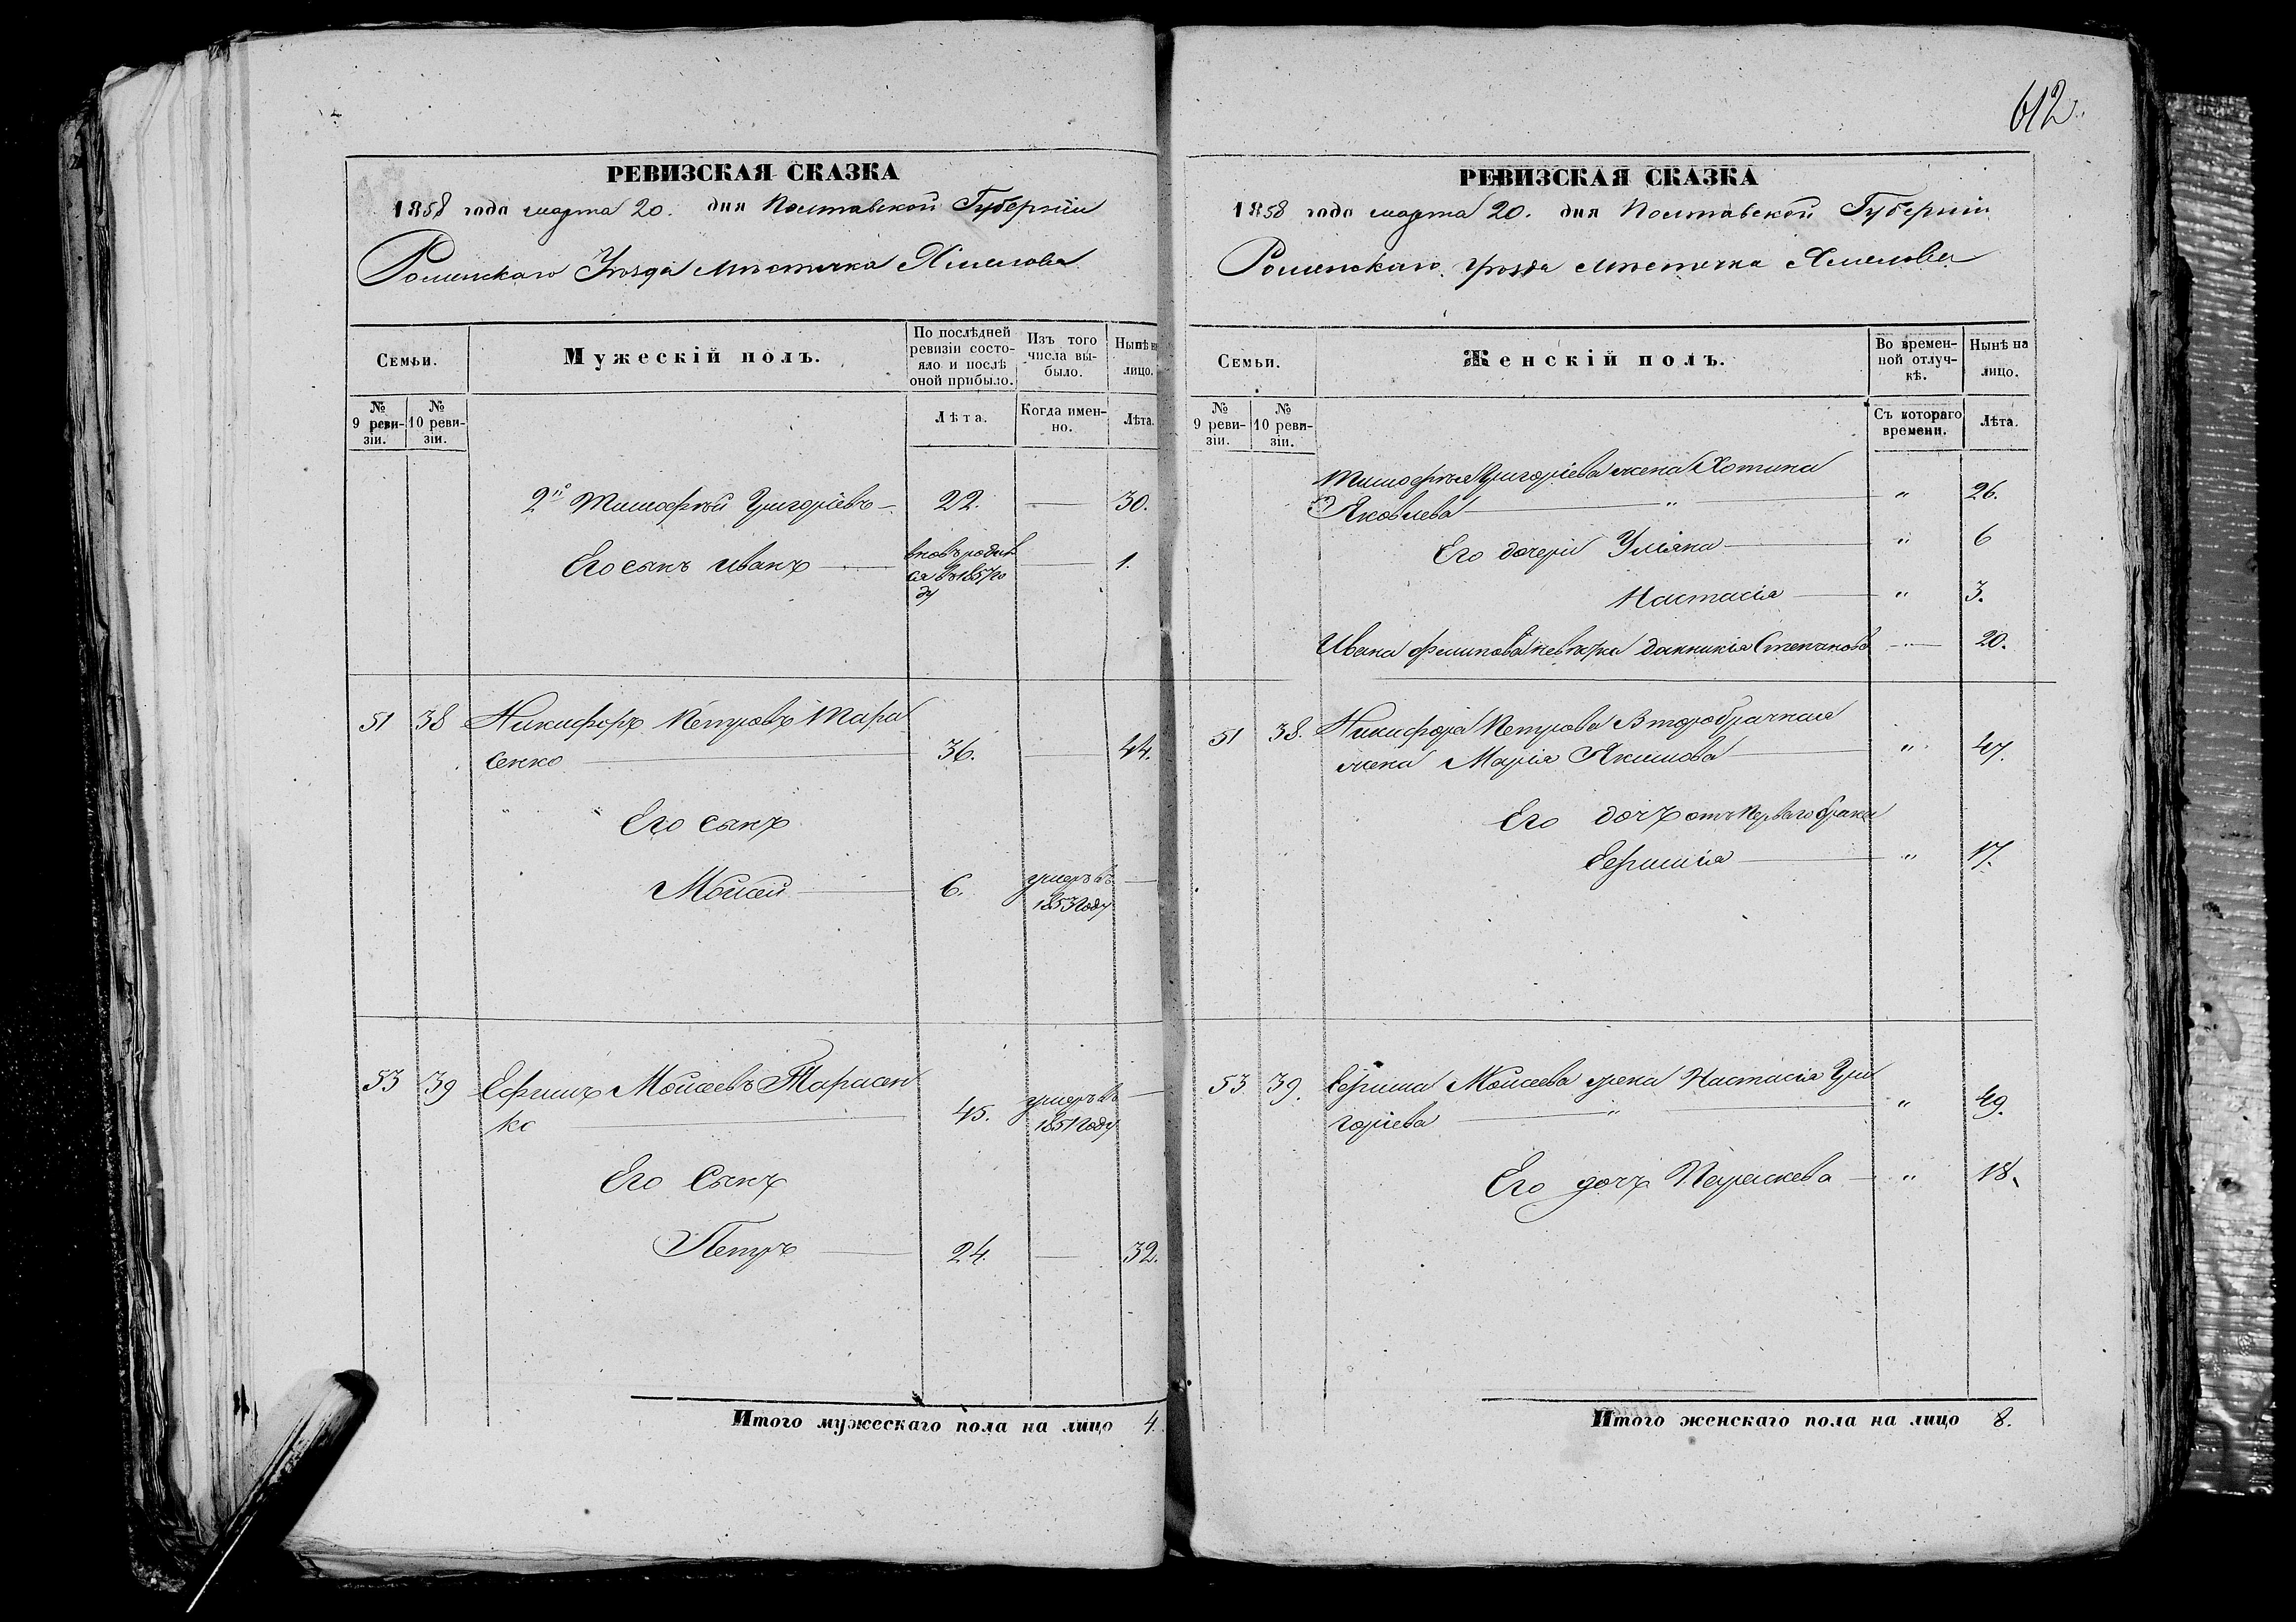 РЕВИЗСКАЯ СКАЗКА
1858 года марта 20. дня Полтавской Губерніи
Роменскаго Уѣзда Мѣстечка Хмелова
Семьи.
Мужескій полъ.
По послѣдней ревизіи состояло и послѣ оной прибыло.
Изъ того числа выбыло.
Нынѣ на лицо.
№ 9 ревизіи.
№ 10 ревизіи.
Лѣта.
Когда именно.
Лѣта.
2й Тимофѣй Григоріевъ 22. — 30.
Его сынъ Иванъ — вновь родился въ 1857 году — 1.
51 38 Никифоръ Петровъ Тара
сенко — 36. — 44.
Его сынъ
Моисей — 6. умеръ въ 1853 году —
53 39 Ефимъ Моисеевъ Тарасен
ко — 45. умеръ въ 1851 году —
Его Сынъ
Петръ — 24. — 32.
Итого мужескаго пола на лицо 4.
612
РЕВИЗСКАЯ СКАЗКА
1858 года марта 20. дня Полтавской Губерніи
Роменскаго уѣзда Мѣстечка Хмелова
Семьи.
Женскій полъ.
Во временной отлучкѣ.
Нынѣ на лицо.
№ 9 ревизіи.
№ 10 ревизіи.
Съ котораго времени.
Лѣта.
Тимофѣя Григоріева жена Хотина
Яковлева — " — " 26.
Его дочери Уліяна — " 6
Настасія — " 3.
Ивана Филипова невѣжка Степанова — 20.
51 38. Никифора Петрова Второбрачная
жена Марія Якимова — " 47.
Его дочь отъ Перваго брака
Ефимія — " 17.
53 39. Ефима Моисеева жена Настасія Гри
горіева — " — " 49.
Его дочь Параскева — " 18.
Итого женскаго пола на лицо 8.